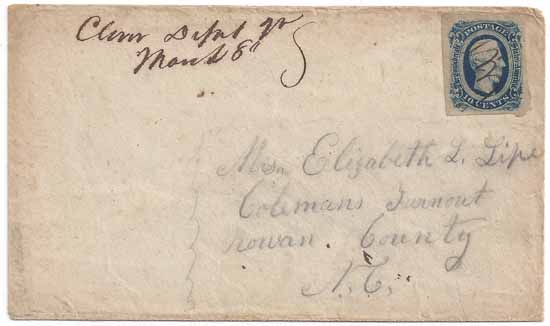 Clover Depot Va
March 8
POSTAGE
10 CENTS
Miss Elizabeth L. Lipe
Colemans Turnout
Rowan County
N.C.